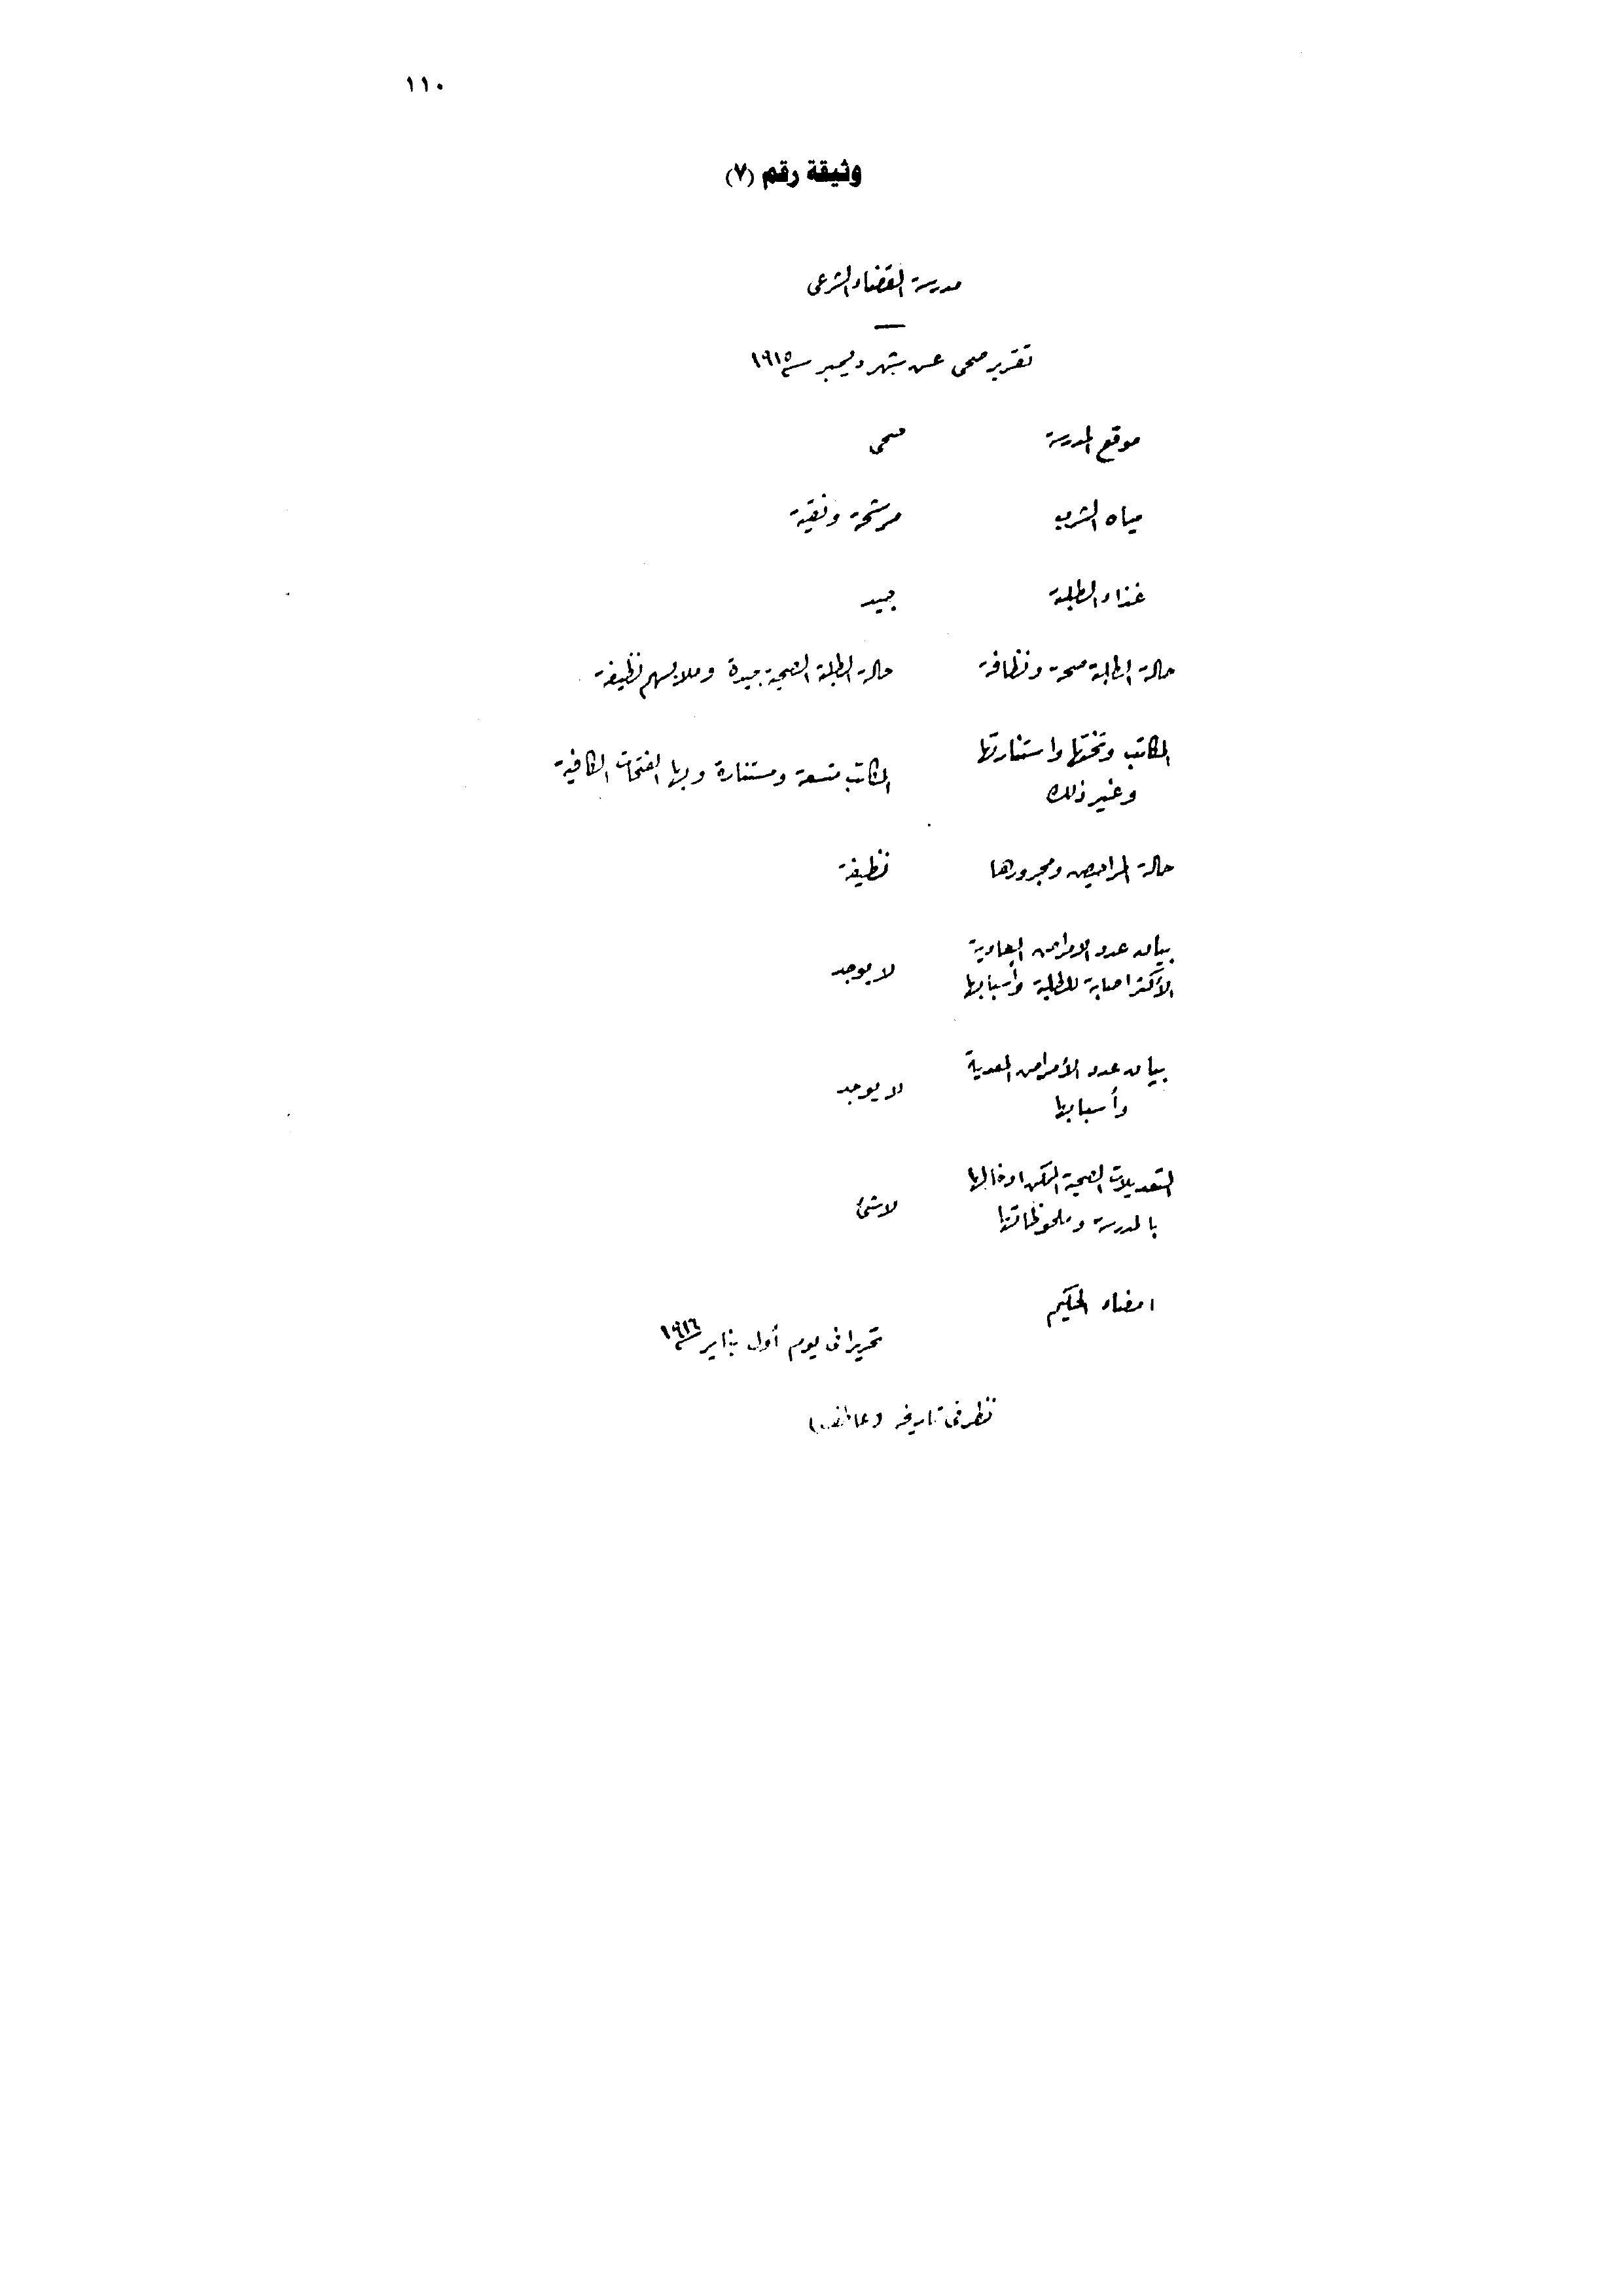 ١١٠
وثيقة رقم (٧)
مدرسة القضاء الشرعى
تقرير صحى عن شهر ديسمبر سنة ١٩١٥
موقع المدرسة صحى
مياه الشرب مرشحة ونقية
غذاء الطلبة جيد
حالة الطلبة صحة ونظافة حالة الطلبة الصحية جيدة وملابسهم نظيفة
المكاتب وتختها واستنارتها
وغير ذلك المكاتب متسعة ومستنارة وبها الفتحات الكافية
حالة المراحيض ومجرورها نظيفة
بيان عدد الامراض العادية
الأكثر اصابة للطلبة وأسبابها لا يوجد
بيان عدد الأمراض المعدية
وأسبابها لا يوجد
التعديلات الصحية الممكن ادخالها
بالمدرسة وملحوظاتها لا شئ
امضاء الحكيم
تحريرا فى يوم أول يناير سنة ١٩١٦
نظر فى تاريخه